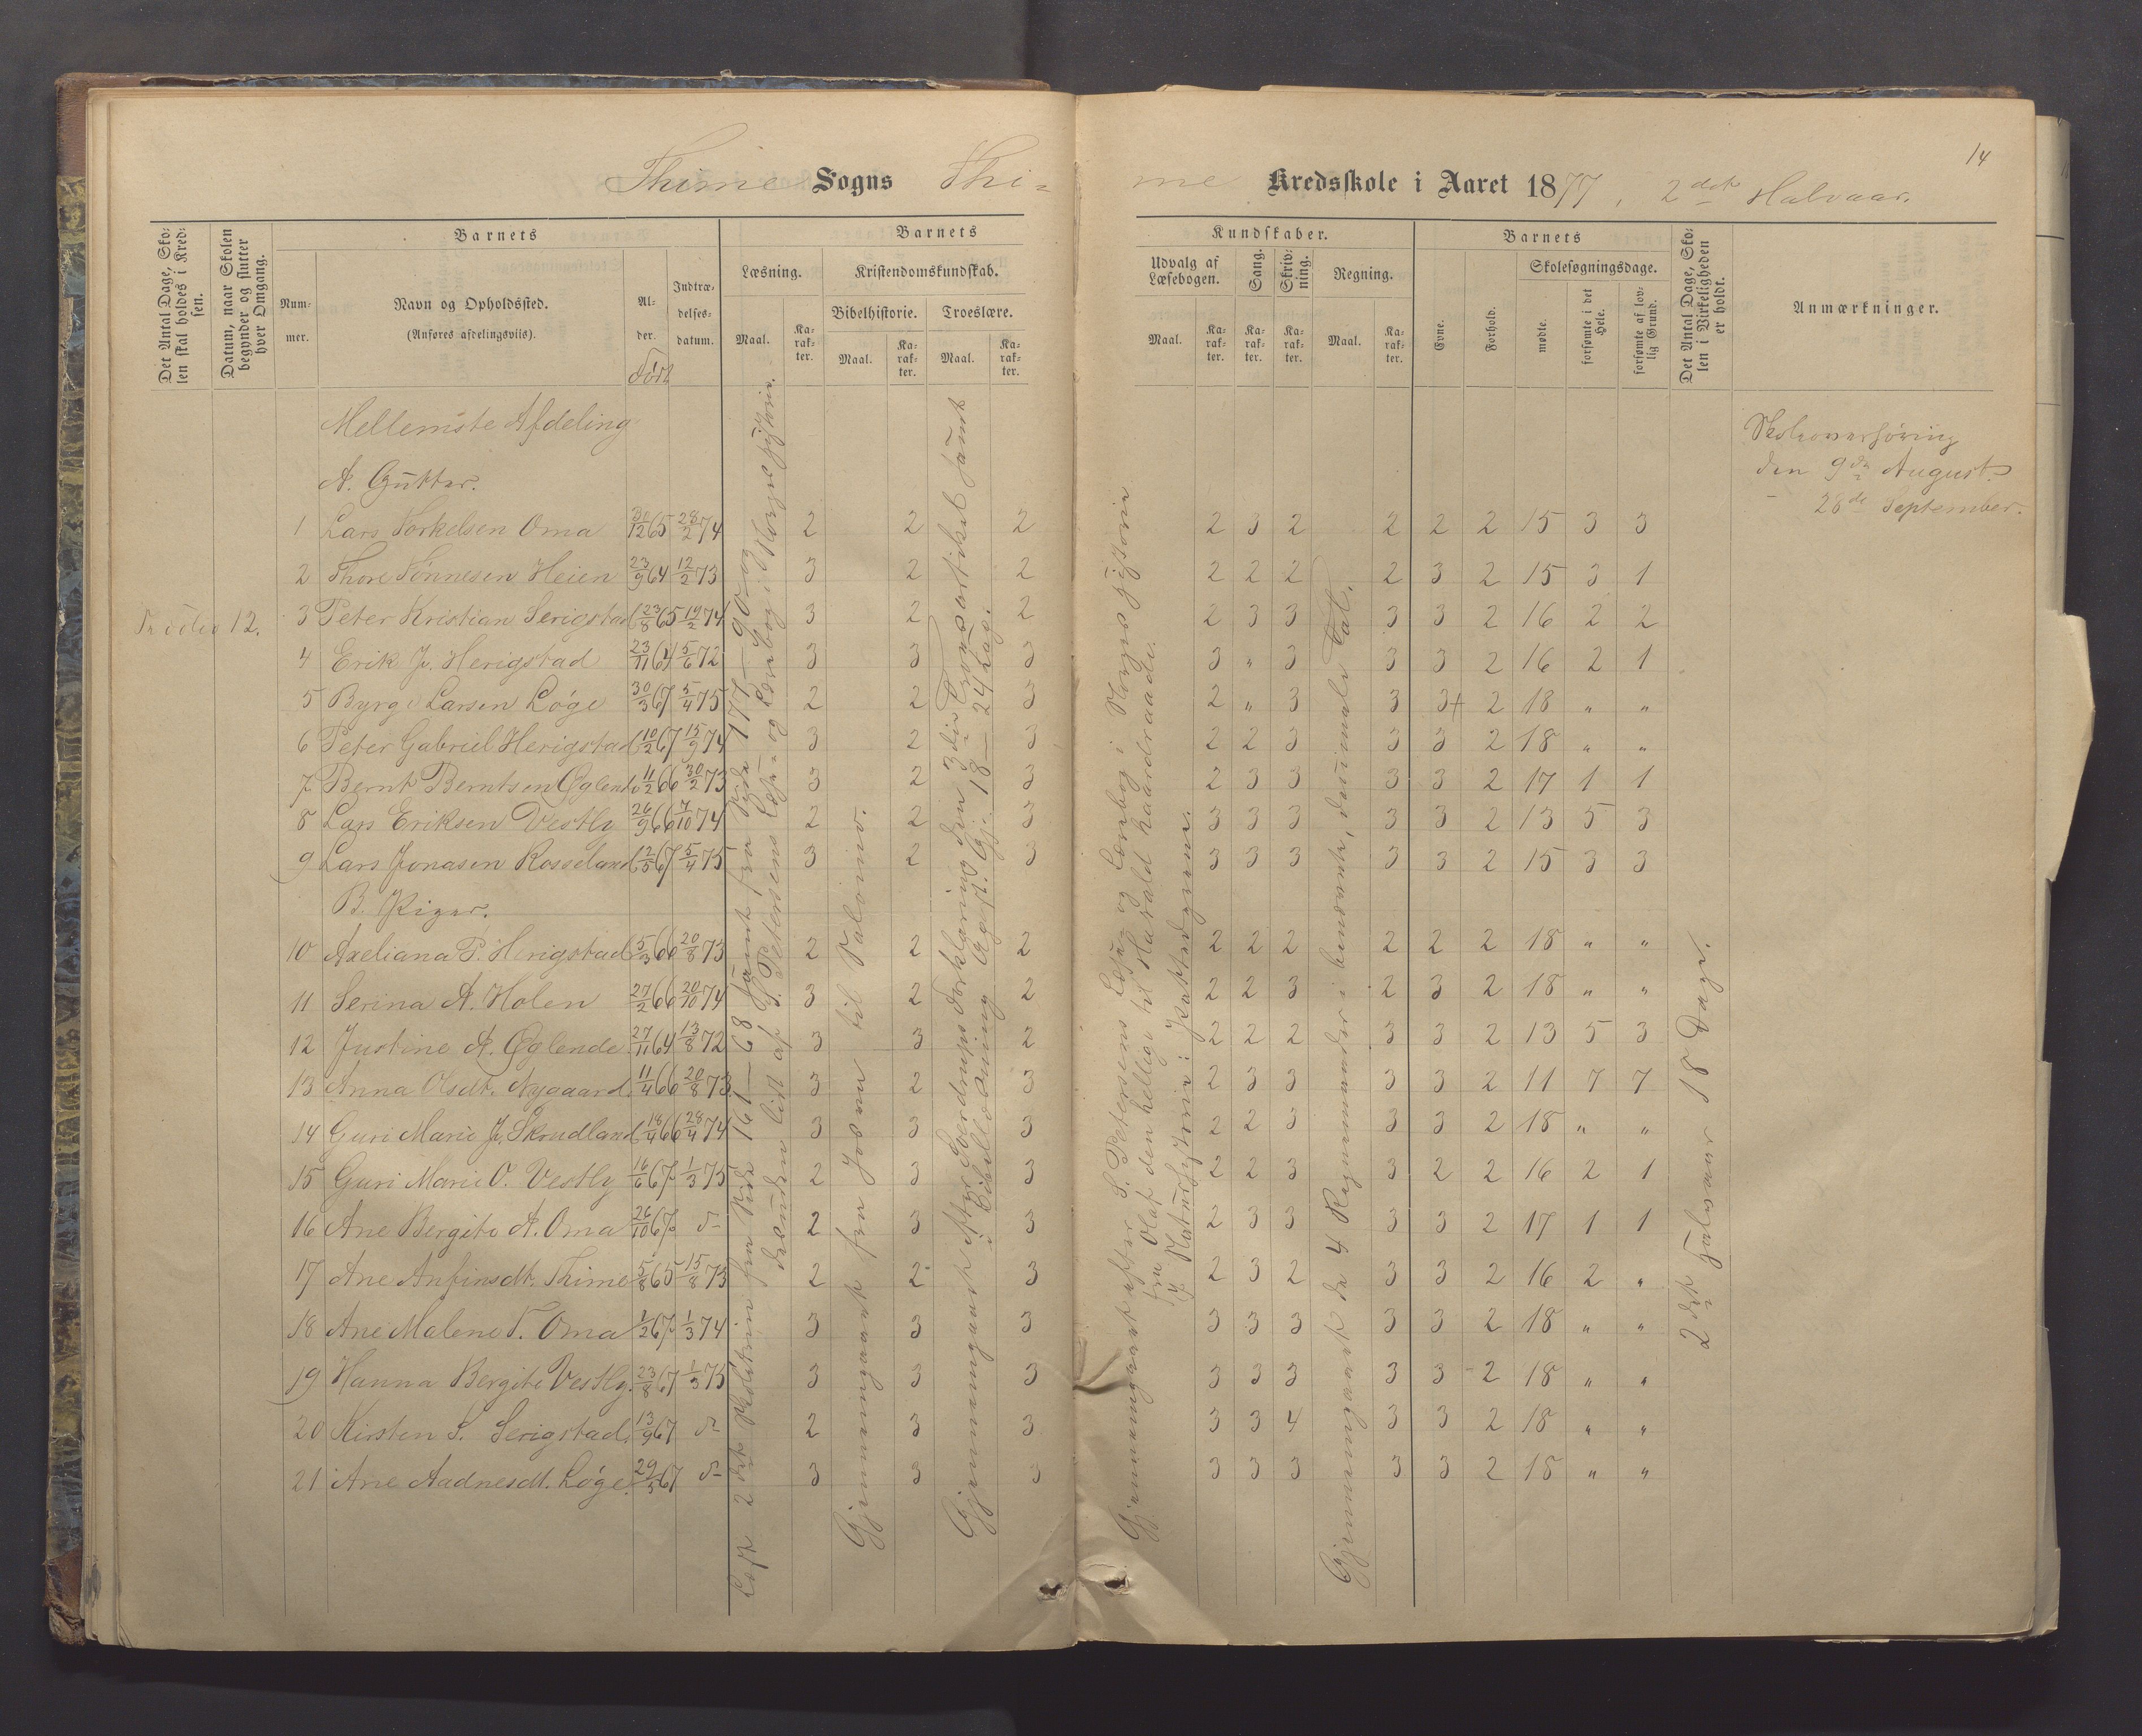 14
Thime Sogns Thi-
me Kredsskole i Aaret 1877, 2det Halvaar.
Det Antal Dage, Sko-
len skal holdes i Kred-
sen.
Datum, naar Skolen
begynder og slutter
hver Omgang.
Barnets
Num-
mer.
Navn og Opholdssted.
(Anføres afdelingsviis).
Al-
der.
Født
Indtræ-
delses-
datum.
Barnets
Læsning.
Maal.
Ka-
rak-
ter.
Kristendomskundskab.
Bibelhistorie.
Maal.
Ka-
rak-
ter.
Troeslære.
Maal.
Ka-
rak-
ter.
Kundskaber.
Udvalg af
Læsebogen.
Maal.
Ka-
rak-
ter.
Sang.
Ka-
rak-
ter.
Skriv-
ning.
Ka-
rak-
ter.
Regning.
Maal.
Ka-
rak-
ter.
Barnets
Evne.
Forhold.
Skolesøgningsdage.
mødte.
forsømte i det
Hele.
forsømte af lov-
lig Grund.
Det Antal Dage, Sko-
len i Virkeligheden
er holdt.
Anmærkninger.
Mellemste Afdeling
A. Gutter.
Skoleoverhøring
den 9de August
- 28de September.
1 Lars Torkelsen Oma 31/12 65 28/2 74 2 2 2 2 3 2 2 2 2 15 3 3
2 Thore Tønnesen Heien 23/9 64 12/2 73 3 2 2 2 2 2 2 3 2 15 3 1
12. 3 Peter Kristian Serigstad 23/8 65 19/2 74 3 2 2 2 3 3 3 3 2 16 2 2
4 Erik J. Herigstad 23/11 64 5/6 72 3 3 3 3 " 3 3 3 2 16 2 1
5 Byrge Larsen Løge 30/3 67 5/4 75 2 2 3 2 " 3 3 3+ 2 18 " "
6 Peter Gabriel Herigstad 10/2 67 15/9 74 3 2 3 2 2 3 3 3 2 18 " "
7 Bernt Berntsen Øglend 11/2 66 30/2 73 3 2 3 2 3 3 3 3 2 17 1 1
8 Lars Eriksen Vestly 26/9 66 7/10 74 2 2 3 3 3 3 3 3 2 13 5 3
9 Lars Jonasen Rosseland 2/5 67 5/4 75 3 2 3 3 3 3 3 3 2 15 3 3
B. Piger.
10 Axeliana P. Herigstad 5/3 66 20/8 73 2 2 2 2 2 2 2 2 2 18 " "
11 Serina A. Holen 27/2 66 20/10 74 3 2 2 2 2 3 2 3 2 18 " "
12 Justine A. Øglende 27/11 64 13/8 72 3 3 2 2 2 2 3 3 2 13 5 3
13 Anna Olsdt. Nygaard 11/4 66 20/8 73 3 2 3 2 3 3 3 3 2 11 7 7
14 Guri Marie J. Skrudland 18/4 66 28/4 74 3 3 3 2 2 3 3 3 2 18 " "
15 Guri Marie O. Vestly 16/6 67 1/3 75 2 3 3 2 2 3 3 2 2 16 2 1
16 Ane Bergite A. Oma 26/10 67 d- 2 3 3 2 3 3 3 3 2 17 1 1
17 Ane Anfinsdt. Thime 5/8 65 15/8 73 2 2 3 2 3 2 3 3 2 16 2 "
18 Ane Malene T. Oma 1/2 67 1/3 74 3 3 3 3 3 3 3 3 2 18 " "
19 Hanna Bergite Vestly 23/8 67 1/3 75 3 3 3 3 3 3 3 3 2 18 " "
20 Kirsten S. Serigstad 13/9 67 d- 2 3 3 3 3 4 3 3 2 18 " "
21 Ane Aadnesdt. Løge 29/3 67 d- 3 3 3 3 3 3 3 3 2 18 " "
Læst 2det Skoletrin fra Side 161-68 samt fra Side 177-90 og
desuden lidt af S. Petersens Læse- og Lærebog i Norges Historie.
Gjennemgaaet fra Josva til Salomo.
Gjennemgaaet efter Sverdrups Forklaring den 3die Troesartikel samt
i Bibellæsning Apost. Gj. 18 - 24 Kap.
Gjennemgaaet efter S. Petersens Læse- og Lærebog i Norges Historie
fra Olaf den hellige til Harald Haardraade.
Naturhistorie: Pattedyrene.
Gjennemgaaet de 4 Regningsarter i benævnte, decimale Tal.
2det Halvaar 18 Dage.